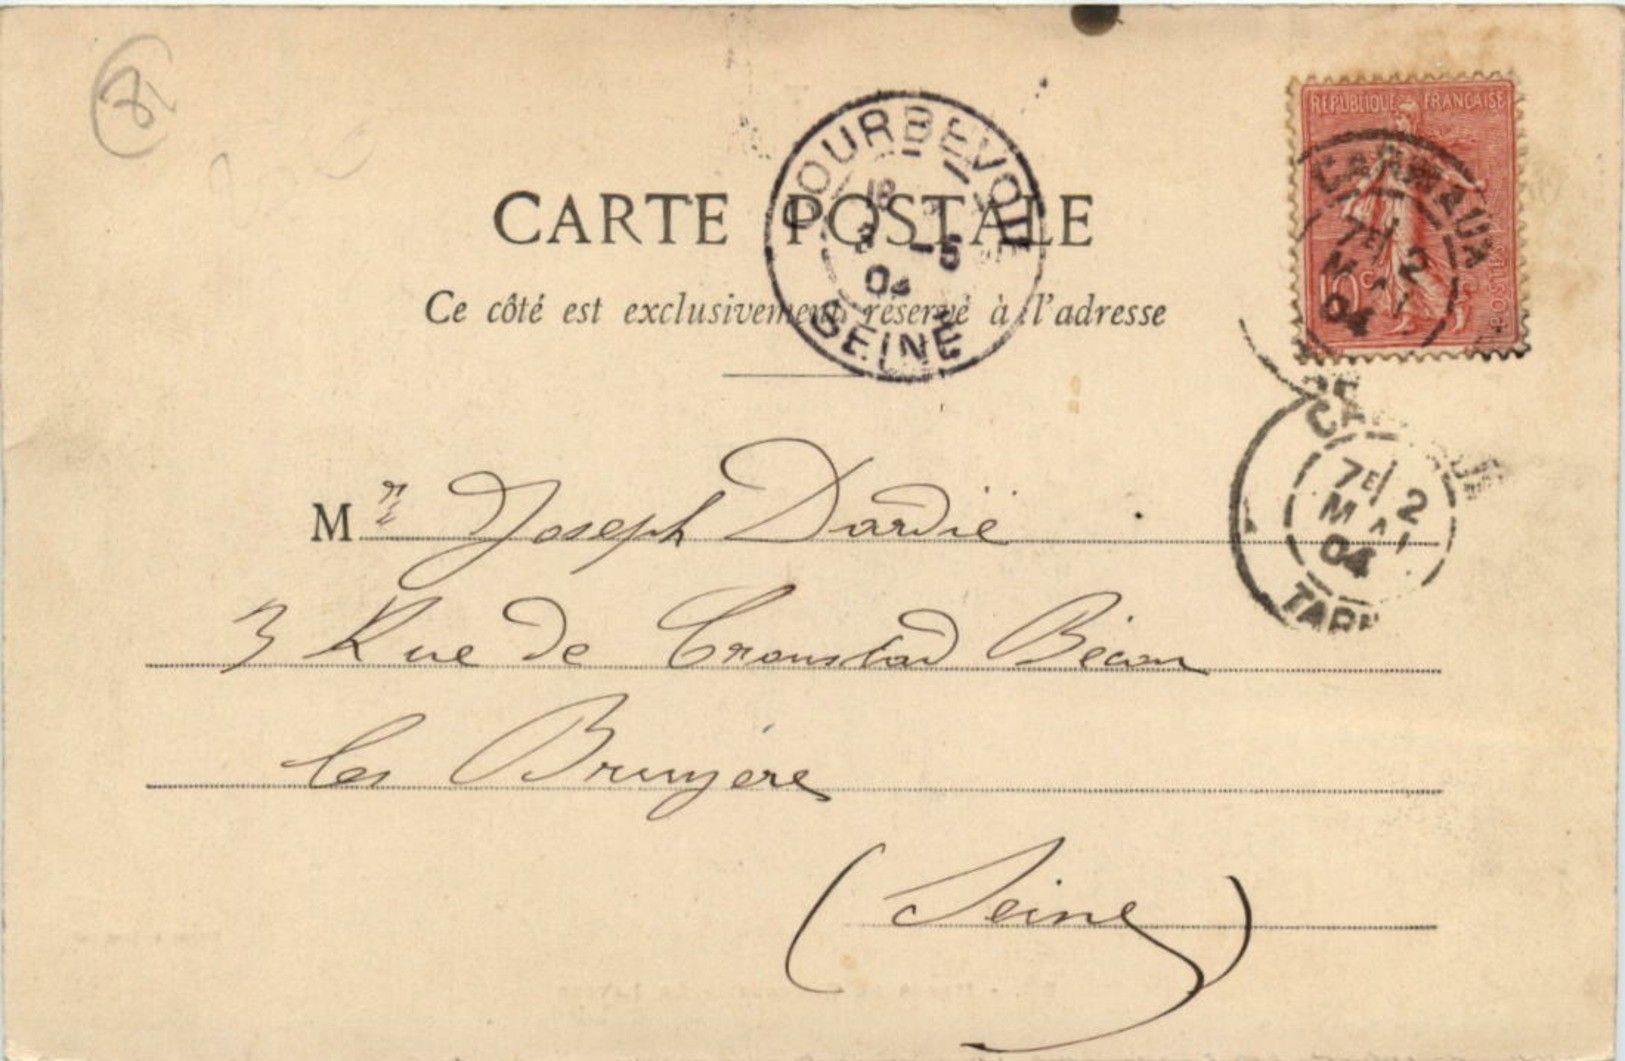 81
REPUBLIQUE FRANÇAISE
10 c
CARMAUX
7E 2
MAI
04
COURBEVOIE
3 -5
04
SEINE
CARTE POSTALE
Ce côté est exclusivement réservé à l'adresse
CARMAUX
7E 2
MAI
04
TARN
Mr Joseph Dardié
3 Rue de Cronstad Bécon
les Bruyère
(Seine)